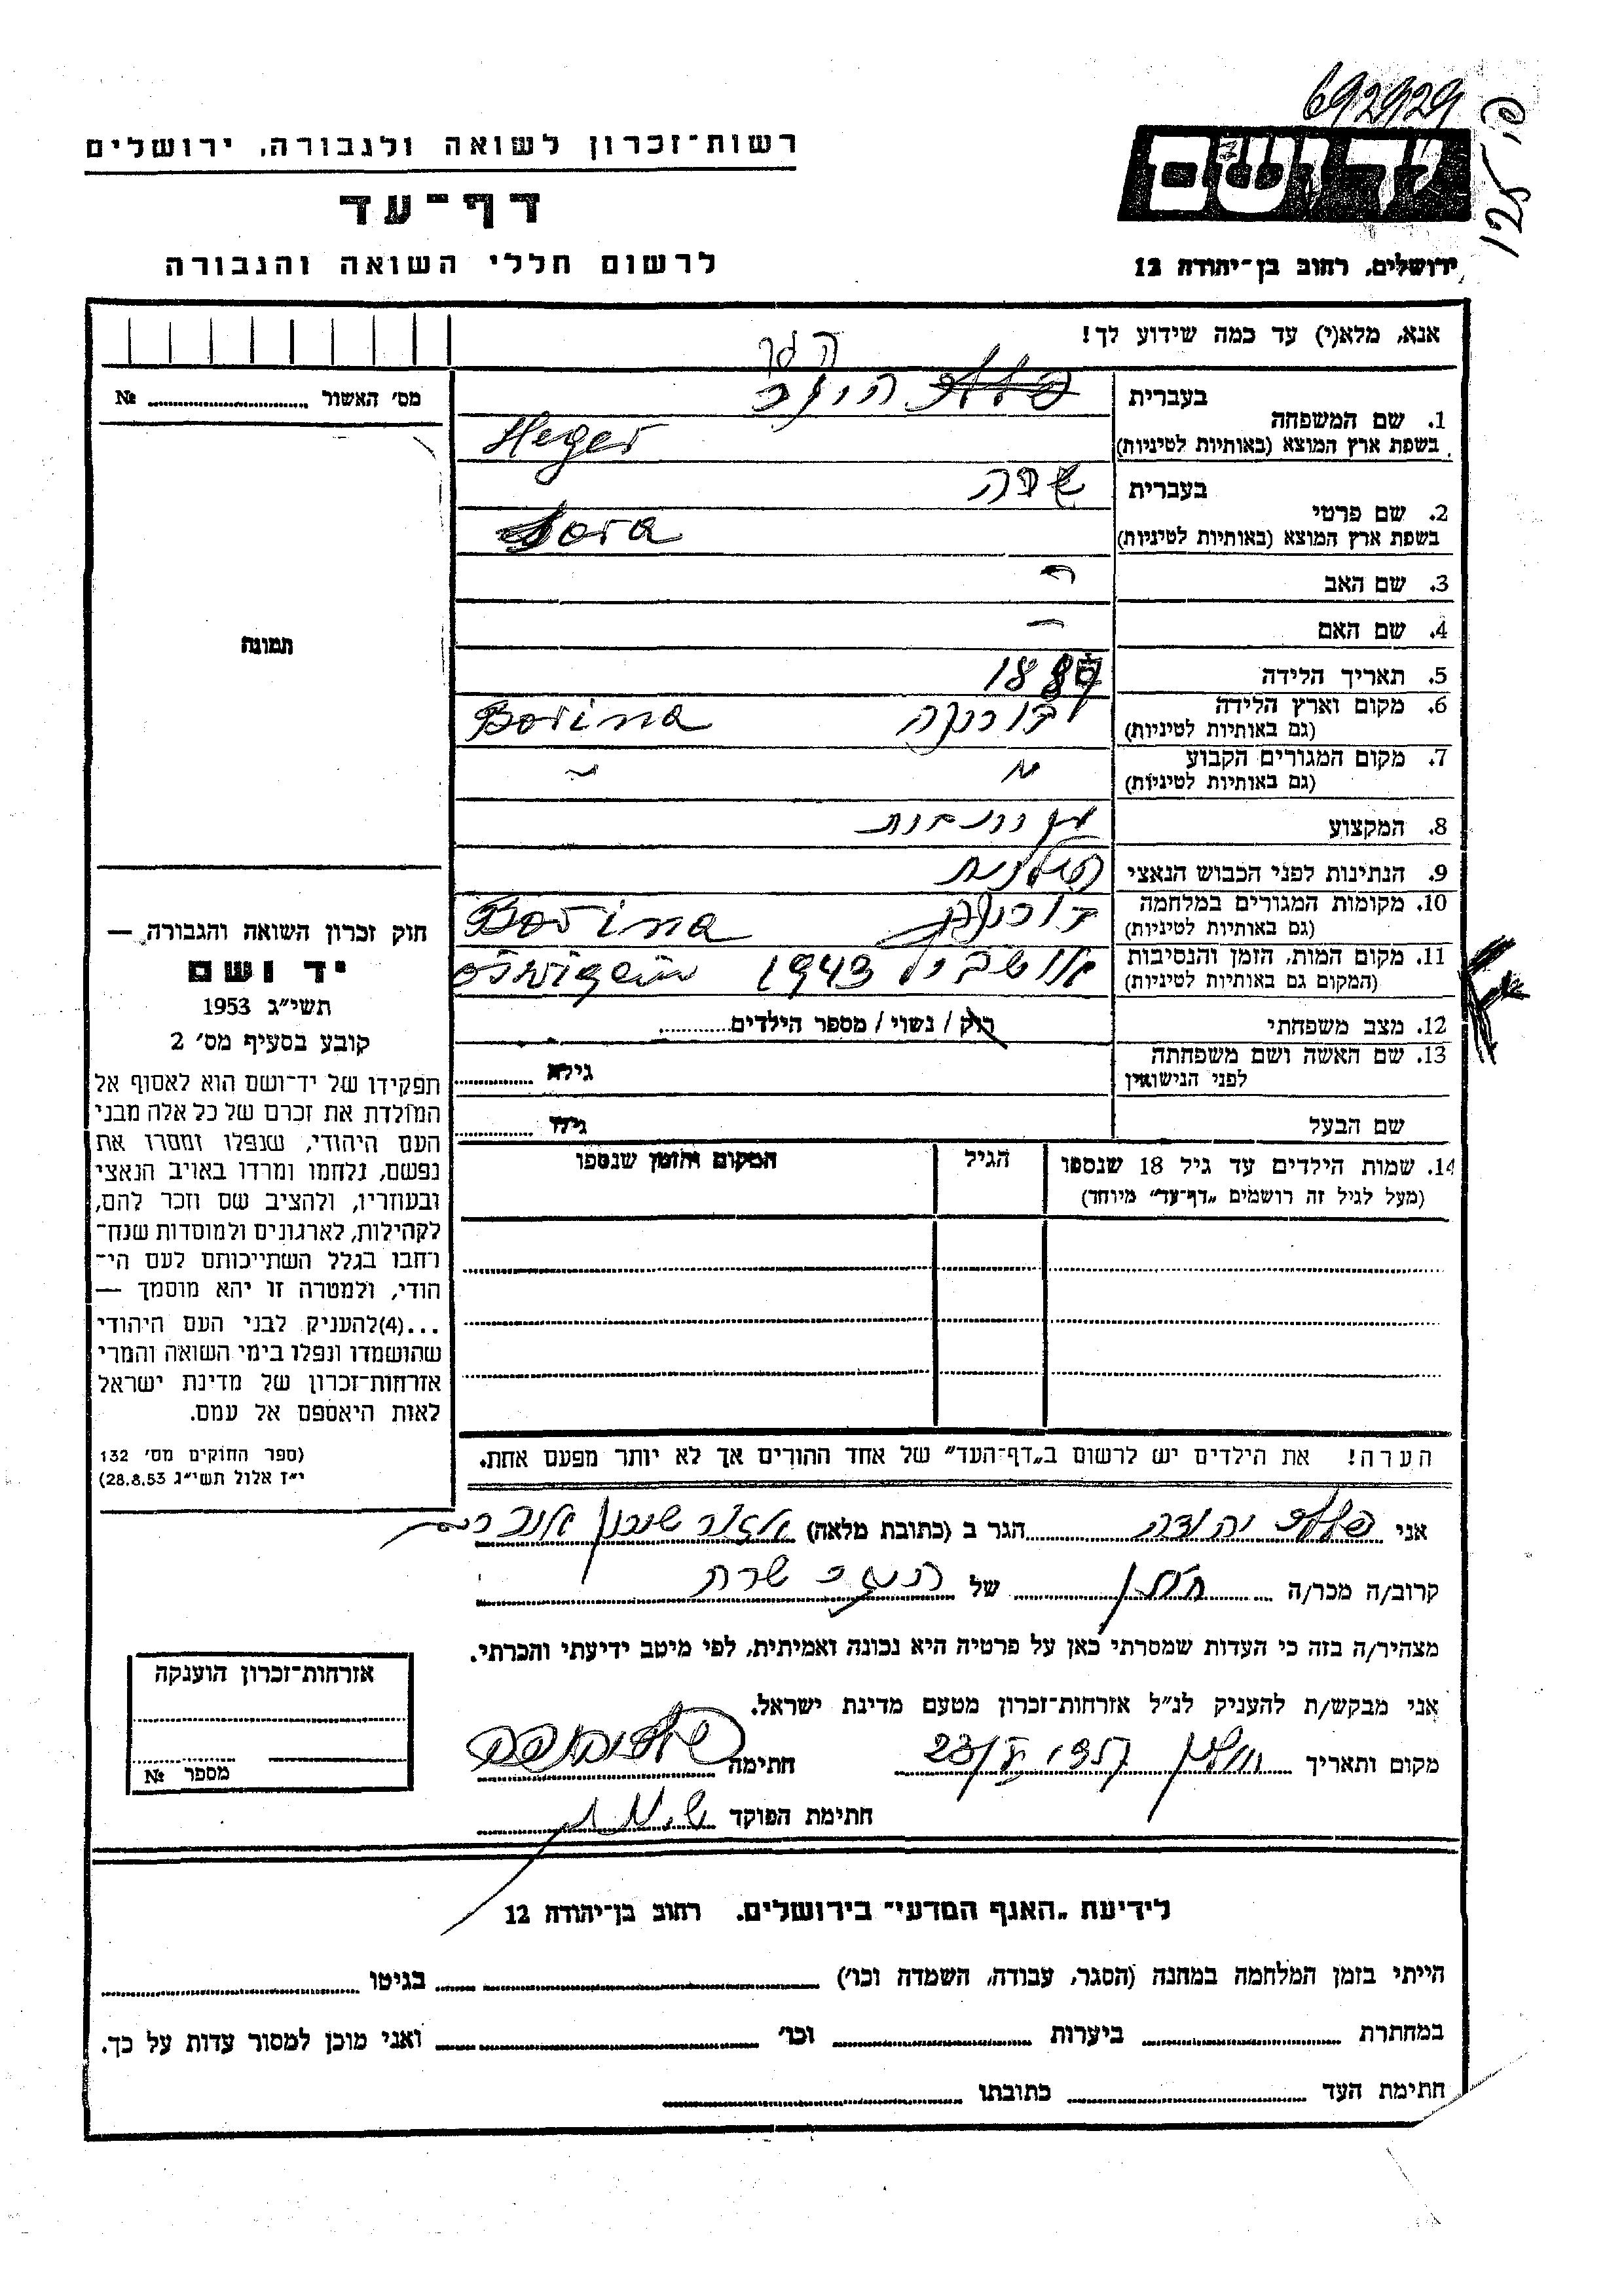 692929
125
רשות־זכרון לשואה ולגבורה, ירושלים
יד ושם
דף־עד
לרשום חללי השואה והגבורה
ירושלים, רחוב בן־יהודה 12
אנא, מלא(י) עד כמה שידוע לך!
מס׳ האשור № ........
הגר
1. שם המשפחה
בעברית
בשפת ארץ המוצא (באותיות לטיניות) Heger
2. שם פרטי
בעברית שרה
בשפת ארץ המוצא (באותיות לטיניות) Sora
3. שם האב –
4. שם האם –
5. תאריך הלידה 1887
6. מקום וארץ הלידה
(גם באותיות לטיניות) Borina
7. מקום המגורים הקבוע
(גם באותיות לטיניות)
8. המקצוע
9. הנתינות לפני הכבוש הנאצי
10. מקומות המגורים במלחמה
(גם באותיות לטיניות) Borina
11. מקום המות, הזמן והנסיבות 1943
(המקום גם באותיות לטיניות)
12. מצב משפחתי רוק / נשוי / מספר הילדים........
13. שם האשה ושם משפחתה
לפני הנישואין גילא ........
שם הבעל גילו ........
14. שמות הילדים עד גיל 18 שנספו הגיל המקום והזמן שנספו
(מעל לגיל זה רושמים „דף־עד״ מיוחד)
הערה! את הילדים יש לרשום ב„דף־העד״ של אחד ההורים אך לא יותר מפעם אחת.
תמונה
חוק זכרון השואה והגבורה, —
יד ושם
תשי״ג 1953
קובע בסעיף מס׳ 2
תפקידו של יד־ושם הוא לאסוף אל
המולדת את זכרם של כל אלה מבני
העם היהודי, שנפלו ומסרו את
נפשם, נלחמו ומרדו באויב הנאצי
ובעוזריו, ולהציב שם וזכר להם,
לקהילות, לארגונים ולמוסדות שנח־
רחבו בגלל השתייכותם לעם הי־
הודי, ולמטרה זו יהא מוסמך —
...(4)להעניק לבני העם היהודי
שהושמדו ונפלו בימי השואה והמרי
אזרחות־זכרון של מדינת ישראל
לאות היאספם אל עמם.
(ספר החוקים מס׳ 132
י״ז אלול תשי״ג 28.8.53)
אני יהודה הגר ב (כתובת מלאה)
קרוב/ה מכר/ה חתן של שרה
מצהיר/ה בזה כי העדות שמסרתי כאן על פרטיה היא נכונה ואמיתית, לפי מיטב ידיעתי והכרתי.
אני מבקש/ת להעניק לנ״ל אזרחות־זכרון מטעם מדינת ישראל.
מקום ותאריך חתימה
חתימת הפוקד
אזרחות־זכרון הוענקה
מספר №
לידיעת „האגף המדעי״ בירושלים. רחוב בן־יהודה 12
הייתי בזמן המלחמה במחנה (הסגר, עבודה, השמדה וכו׳) ........ בגיטו ........
במחתרת ........ ביערות ........ וכו׳ ........ ואני מוכן למסור עדות על כך.
חתימת העד ........ כתובתו ........